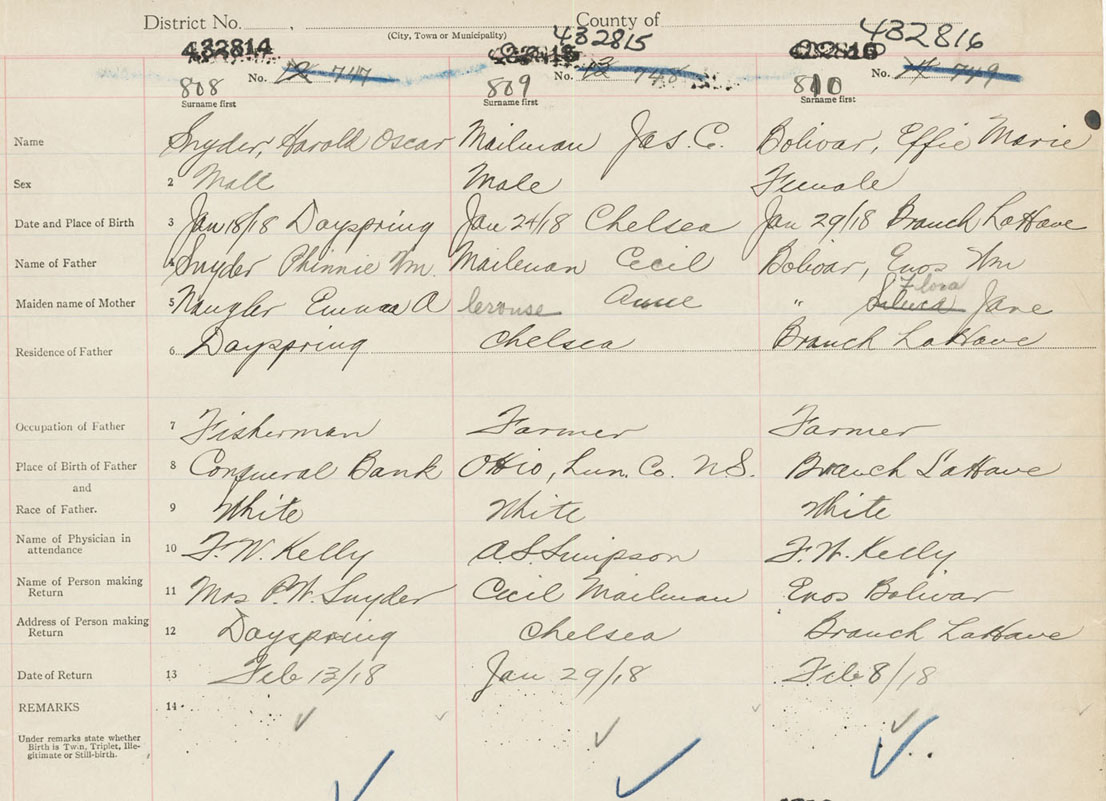 District No. County of
(City, Town or Municipality)
432814 432815 432816
No. 12 747 No. 13 748 No. 14 749
808 809 810
Surname first Surname first Surname first
Name Snyder, Harold Oscar Mailman Jas. C. Bolivar, Effie Marie
Sex 2 Mall Male Female
Date and Place of Birth 3 Jan 18/18 Dayspring Jan 24/18 Chelsea Jan 29/18 Branch LaHave
Name of Father 4 Snyder Phinnie Wm. Mailman Cecil Bolivar, Enos Wm
Flora
Maiden name of Mother 5 Naugler Emma A Crouse Annie " Jane
Residence of Father 6 Dayspring Chelsea Branch LaHave
Occupation of Father 7 Fisherman Farmer Farmer
Place of Birth of Father 8 Conqueral Bank Ohio, Lun. Co. N.S. Branch LaHave
and
Race of Father. 9 White White White
Name of Physician in
attendance 10 F. W. Kelly A. S. Simpson F. W. Kelly
Name of Person making
Return 11 Mrs P. W. Snyder Cecil Mailman Enos Bolivar
Address of Person making
Return 12 Dayspring Chelsea Branch LaHave
Date of Return 13 Feb 13/18 Jan 29/18 Feb 8/18
REMARKS 14
Under remarks state whether
Birth is Twin, Triplet, Ille-
gitimate or Still-birth.